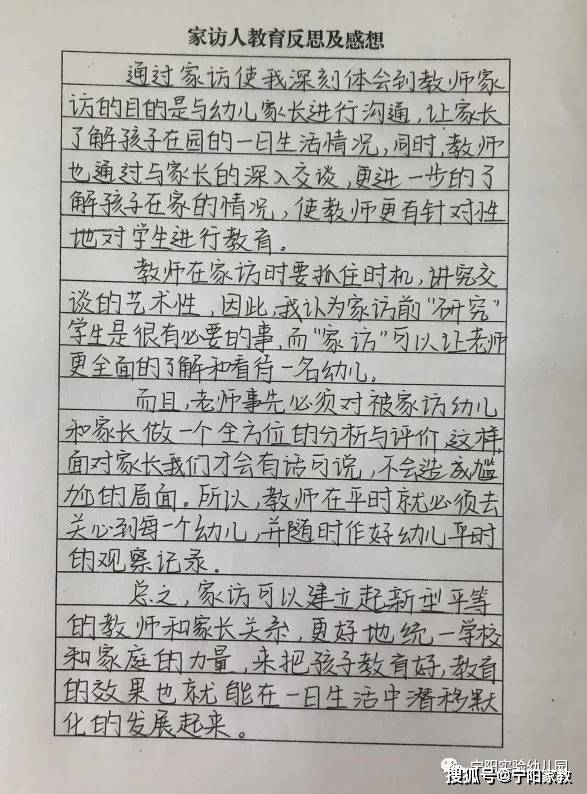 家访人教育反思及感想
通过家访使我深刻体会到教师家
访的目的是与幼儿家长进行沟通，让家长
了解孩子在园的一日生活情况，同时，教师
也通过与家长的深入交谈，更进一步的了
解孩子在家的情况，使教师更有针对性
地对学生进行教育。
教师在家访时要抓住时机，讲究交
谈的艺术性，因此，我认为家访前“研究”
学生是很有必要的事，而“家访”可以让老师
更全面的了解和看待一名幼儿，
而且，老师事先必须对被家访幼儿
和家长做一个全方位的分析与评价，这样，
面对家长我们才会有话可说，不会造成尴
尬的局面。所以，教师在平时就必须去
关心到每一个幼儿，并随时作好幼儿平时
的观察记录。
总之，家访可以建立起新型平等
的教师和家长关系，更好地，统一学校
和家庭的力量，来把孩子教育好，教育
的效果也就能在一日生活中潜移默
化的发展起来。
宁阳实验幼儿园
搜狐号@宁阳家教